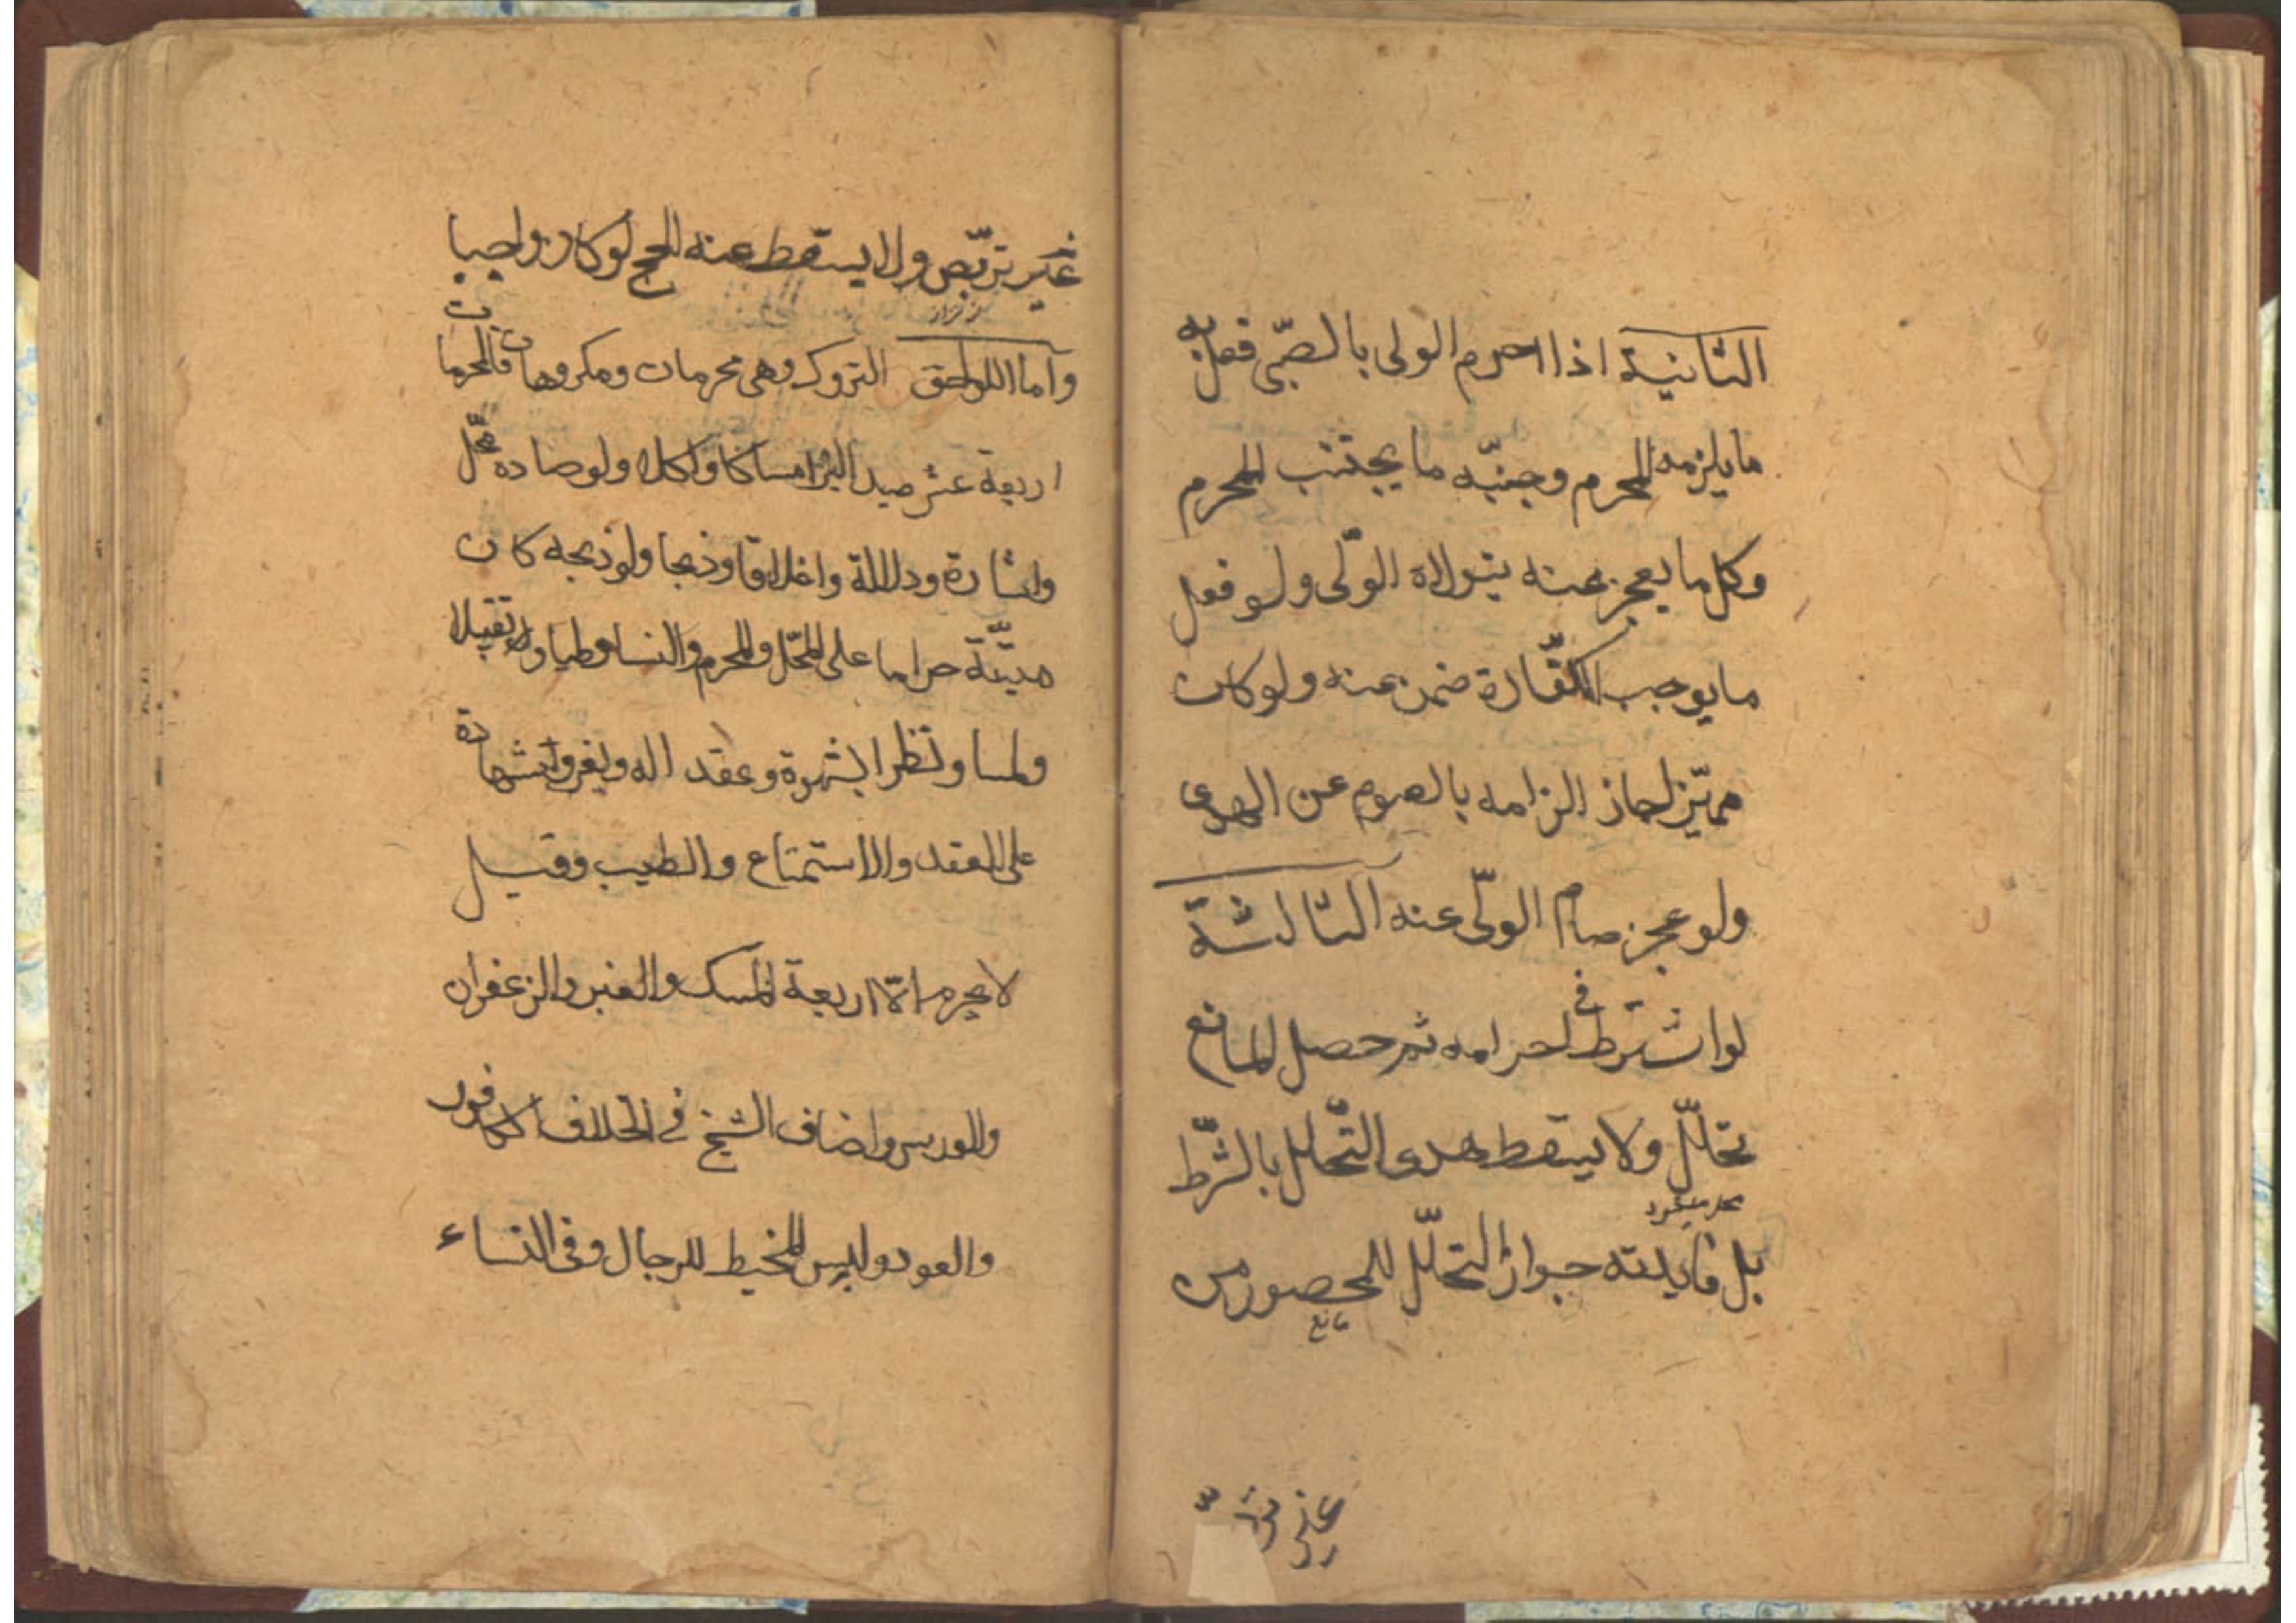 الثانية اذا احرم الولى بالصّبى فعل به
ما يلزمه المحرم وجنبّه ما يجتنب المحرم
وكل ما يعجز عنه يتولاه الولّى ولو فعل
ما يوجب الكفّارة ضمن عنه ولو كان
مميّزا جاز الزامه بالصوم عن الهدى
ولو عجز صام الولّى عنه الثالثة
لو اشترط فى احرامه ثم حصل المانع
تحلّل ولا يسقط هدى التّحلل بالشّرط
بل فايدته جواز التحلّل للمحصور من
مانع
غير تربّص ولا يسقط عنه الحج لو كان واجبا
واما اللواحق التروك وهى محرمات ومكروهات فالمحرمات
اربعة عشر صيد البرّ امساكا واكلا ولو صاده محّل
واشارة ودلالة واغلاقا وذبحا ولو ذبحه كان
ميتّة حراما على المحّل والمحرم والنسا وطيا وتقبيلا
ولمسا ونظرا بشهوة وعقدا له ولغيره وشهادة
على العقد والاستمتاع والطيب وقيل
لا يحرم الّا اربعة المسك والعنبر والزعفران
والورس واضاف الشيخ فى الخلاف الكافور
والعود ولبس المخيط للرجال وفى النساء